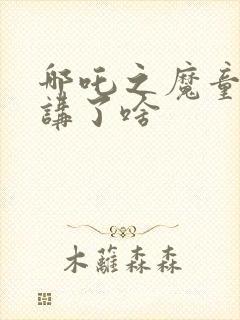 哪吒之魔童
講了啥
木蘿森森